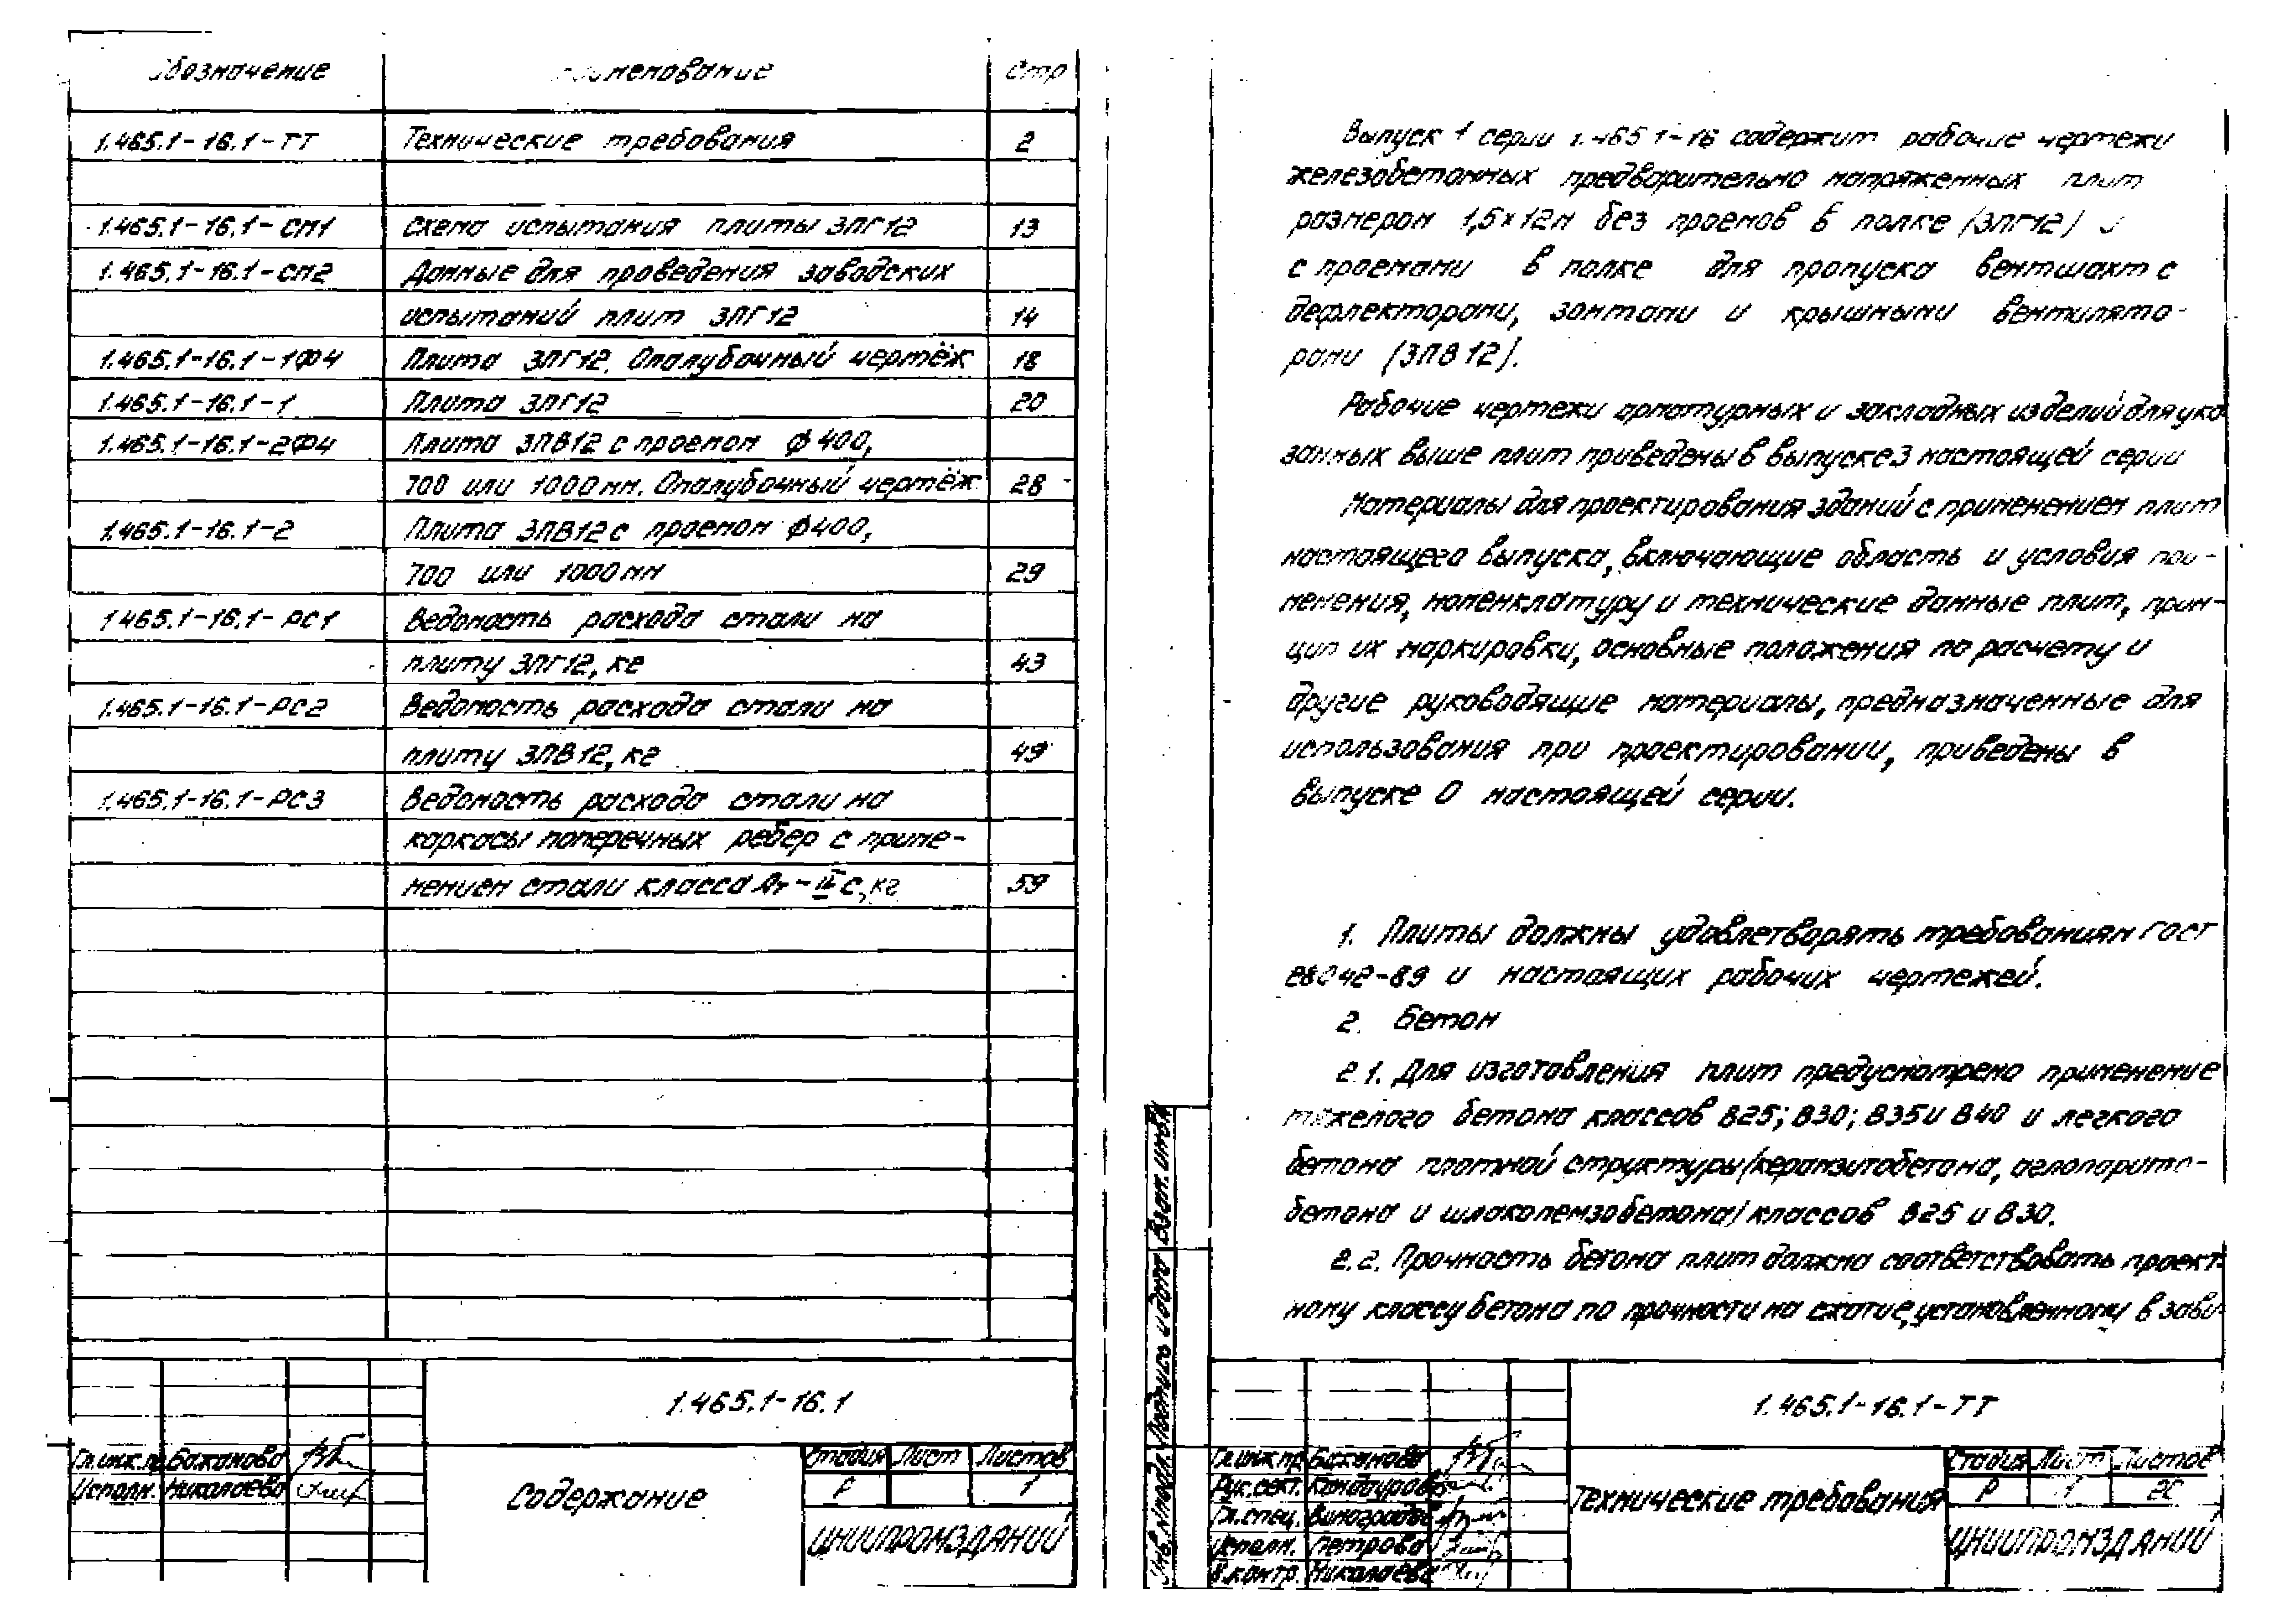 Обозначение Наименование Стр
1.465.1-16.1-ТТ Технические требования 2
1.465.1-16.1-СМ1 Схема испытания плиты 3ПГ12 13
1.465.1-16.1-СМ2 Данные для проведения заводских
испытаний плит 3ПГ12 14
1.465.1-16.1-1ФЧ Плита 3ПГ12. Опалубочный чертёж 18
1.465.1-16.1-1 Плита 3ПГ12 20
1.465.1-16.1-2ФЧ Плита 3ПВ12 с проемом ϕ400,
700 или 1000мм. Опалубочный чертёж 28
1.465.1-16.1-2 Плита 3ПВ12 с проемом ϕ400,
700 или 1000мм 29
1.465.1-16.1-РС1 Ведомость расхода стали на
плиту 3ПГ12, кг 43
1.465.1-16.1-РС2 Ведомость расхода стали на
плиту 3ПВ12, кг 49
1.465.1-16.1-РС3 Ведомость расхода стали на
каркасы поперечных ребер с приме-
нением стали класса Ат-IVС, кг 59
1.465.1-16.1
Гл.инж.пр. Бажанова
Исполн. Николаева
Содержание
Стадия Лист Листов
Р 1
ЦНИИПРОМЗДАНИЙ
Выпуск 1 серии 1.465.1-16 содержит рабочие чертежи
железобетонных предварительно напряженных плит
размером 1,5х12м без проемов в полке (3ПГ12) и
с проемами в полке для пропуска вентшахт с
дефлекторами, зонтами и крышными вентилято-
рами (3ПВ12).
Рабочие чертежи арматурных и закладных изделий для ука
занных выше плит приведены в выпуске 3 настоящей серии
Материалы для проектирования зданий с применением плит
настоящего выпуска, включающие область и условия при-
менения, номенклатуру и технические данные плит, прин-
цип их маркировки, основные положения по расчету и
другие руководящие материалы, предназначенные для
использования при проектировании, приведены в
выпуске 0 настоящей серии.
1. Плиты должны удовлетворять требованиям ГОСТ
28042-89 и настоящих рабочих чертежей.
2. Бетон
2.1. Для изготовления плит предусмотрено применение
тяжелого бетона классов В25; В30; В35 и В40 и легкого
бетона плотной структуры (керамзитобетона, аглопорито-
бетона и шлакопемзобетона) классов В25 и В30.
2.2. Прочность бетона плит должна соответствовать проект-
ному классу бетона по прочности на сжатие, установленному в зави-
Инв.№подл. Подпись и дата Взам.инв.№
1.465.1-16.1-ТТ
Гл.инж.пр. Бажанова
Рук.сект. Кондаурова
Гл.спец. Виноградов
Исполн. Петрова
Н.контр. Николаева
Технические требования
Стадия Лист Листов
Р 1
ЦНИИПРОМЗДАНИЙ